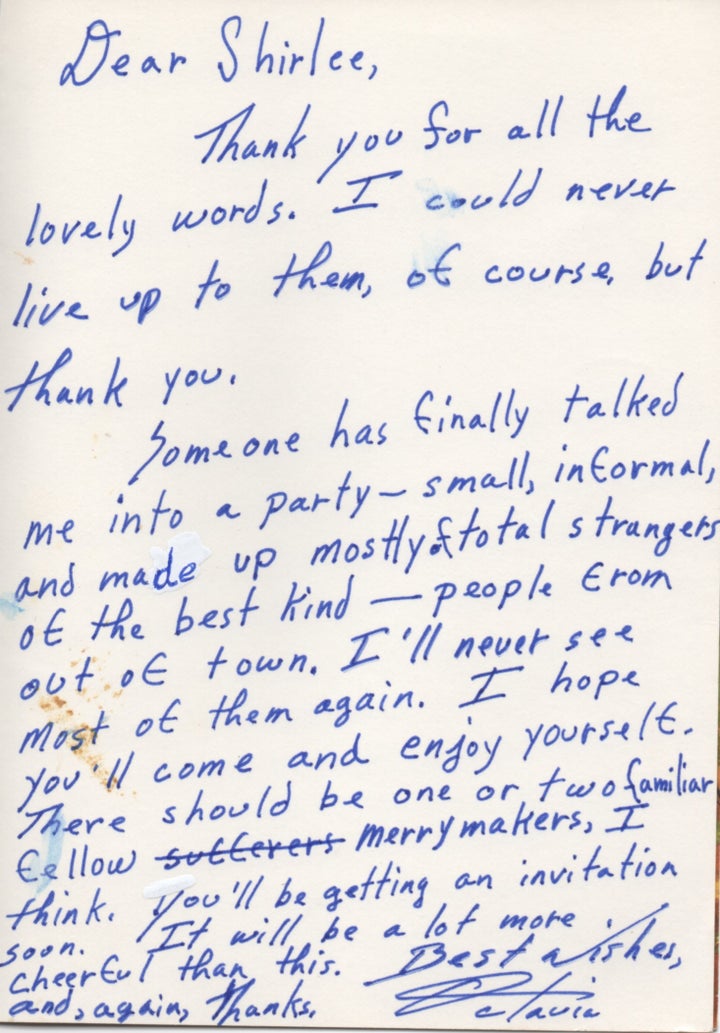 Dear Shirlee,
Thank you for all the
lovely words. I could never
live up to them, of course, but
thank you.
Someone has finally talked
me into a party — small, informal,
and made up mostly of total strangers
of the best kind — people from
out of town. I'll never see
most of them again. I hope
you'll come and enjoy yourself.
There should be one or two familiar
fellow sufferers merrymakers, I
think. You'll be getting an invitation
soon. It will be a lot more
cheerful than this. Best Wishes,
and, again, Thanks. Octavia